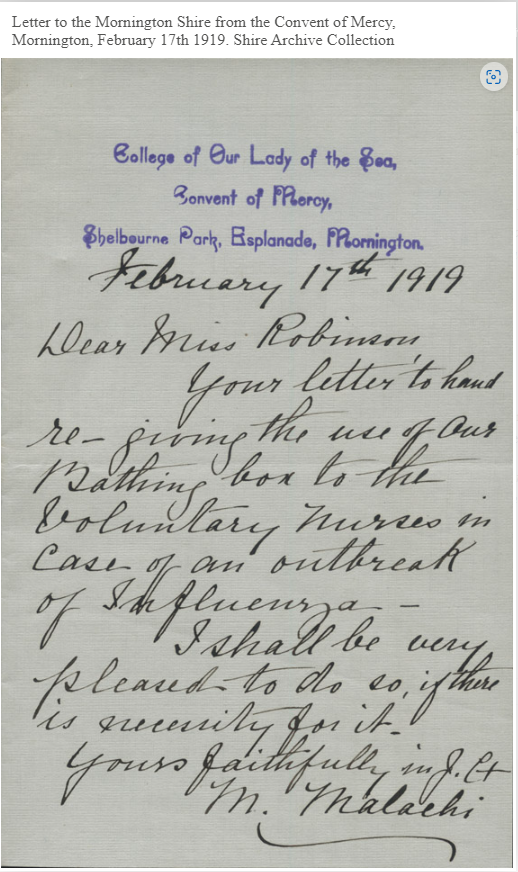 Letter to the Mornington Shire from the Convent of Mercy,
Mornington, February 17th 1919. Shire Archive Collection
College of Our Lady of the Sea,
Convent of Mercy,
Shelbourne Park, Esplanade, Mornington.
February 17th 1919
Dear Miss Robinson
Your letter to hand
re- giving the use of our
Bathing box to the
Voluntary Nurses in
Case of an outbreak
of Influenza -
I shall be very
pleased to do so, if there
is necessity for it.
Yours faithfully in J. Ct
M. Malachi